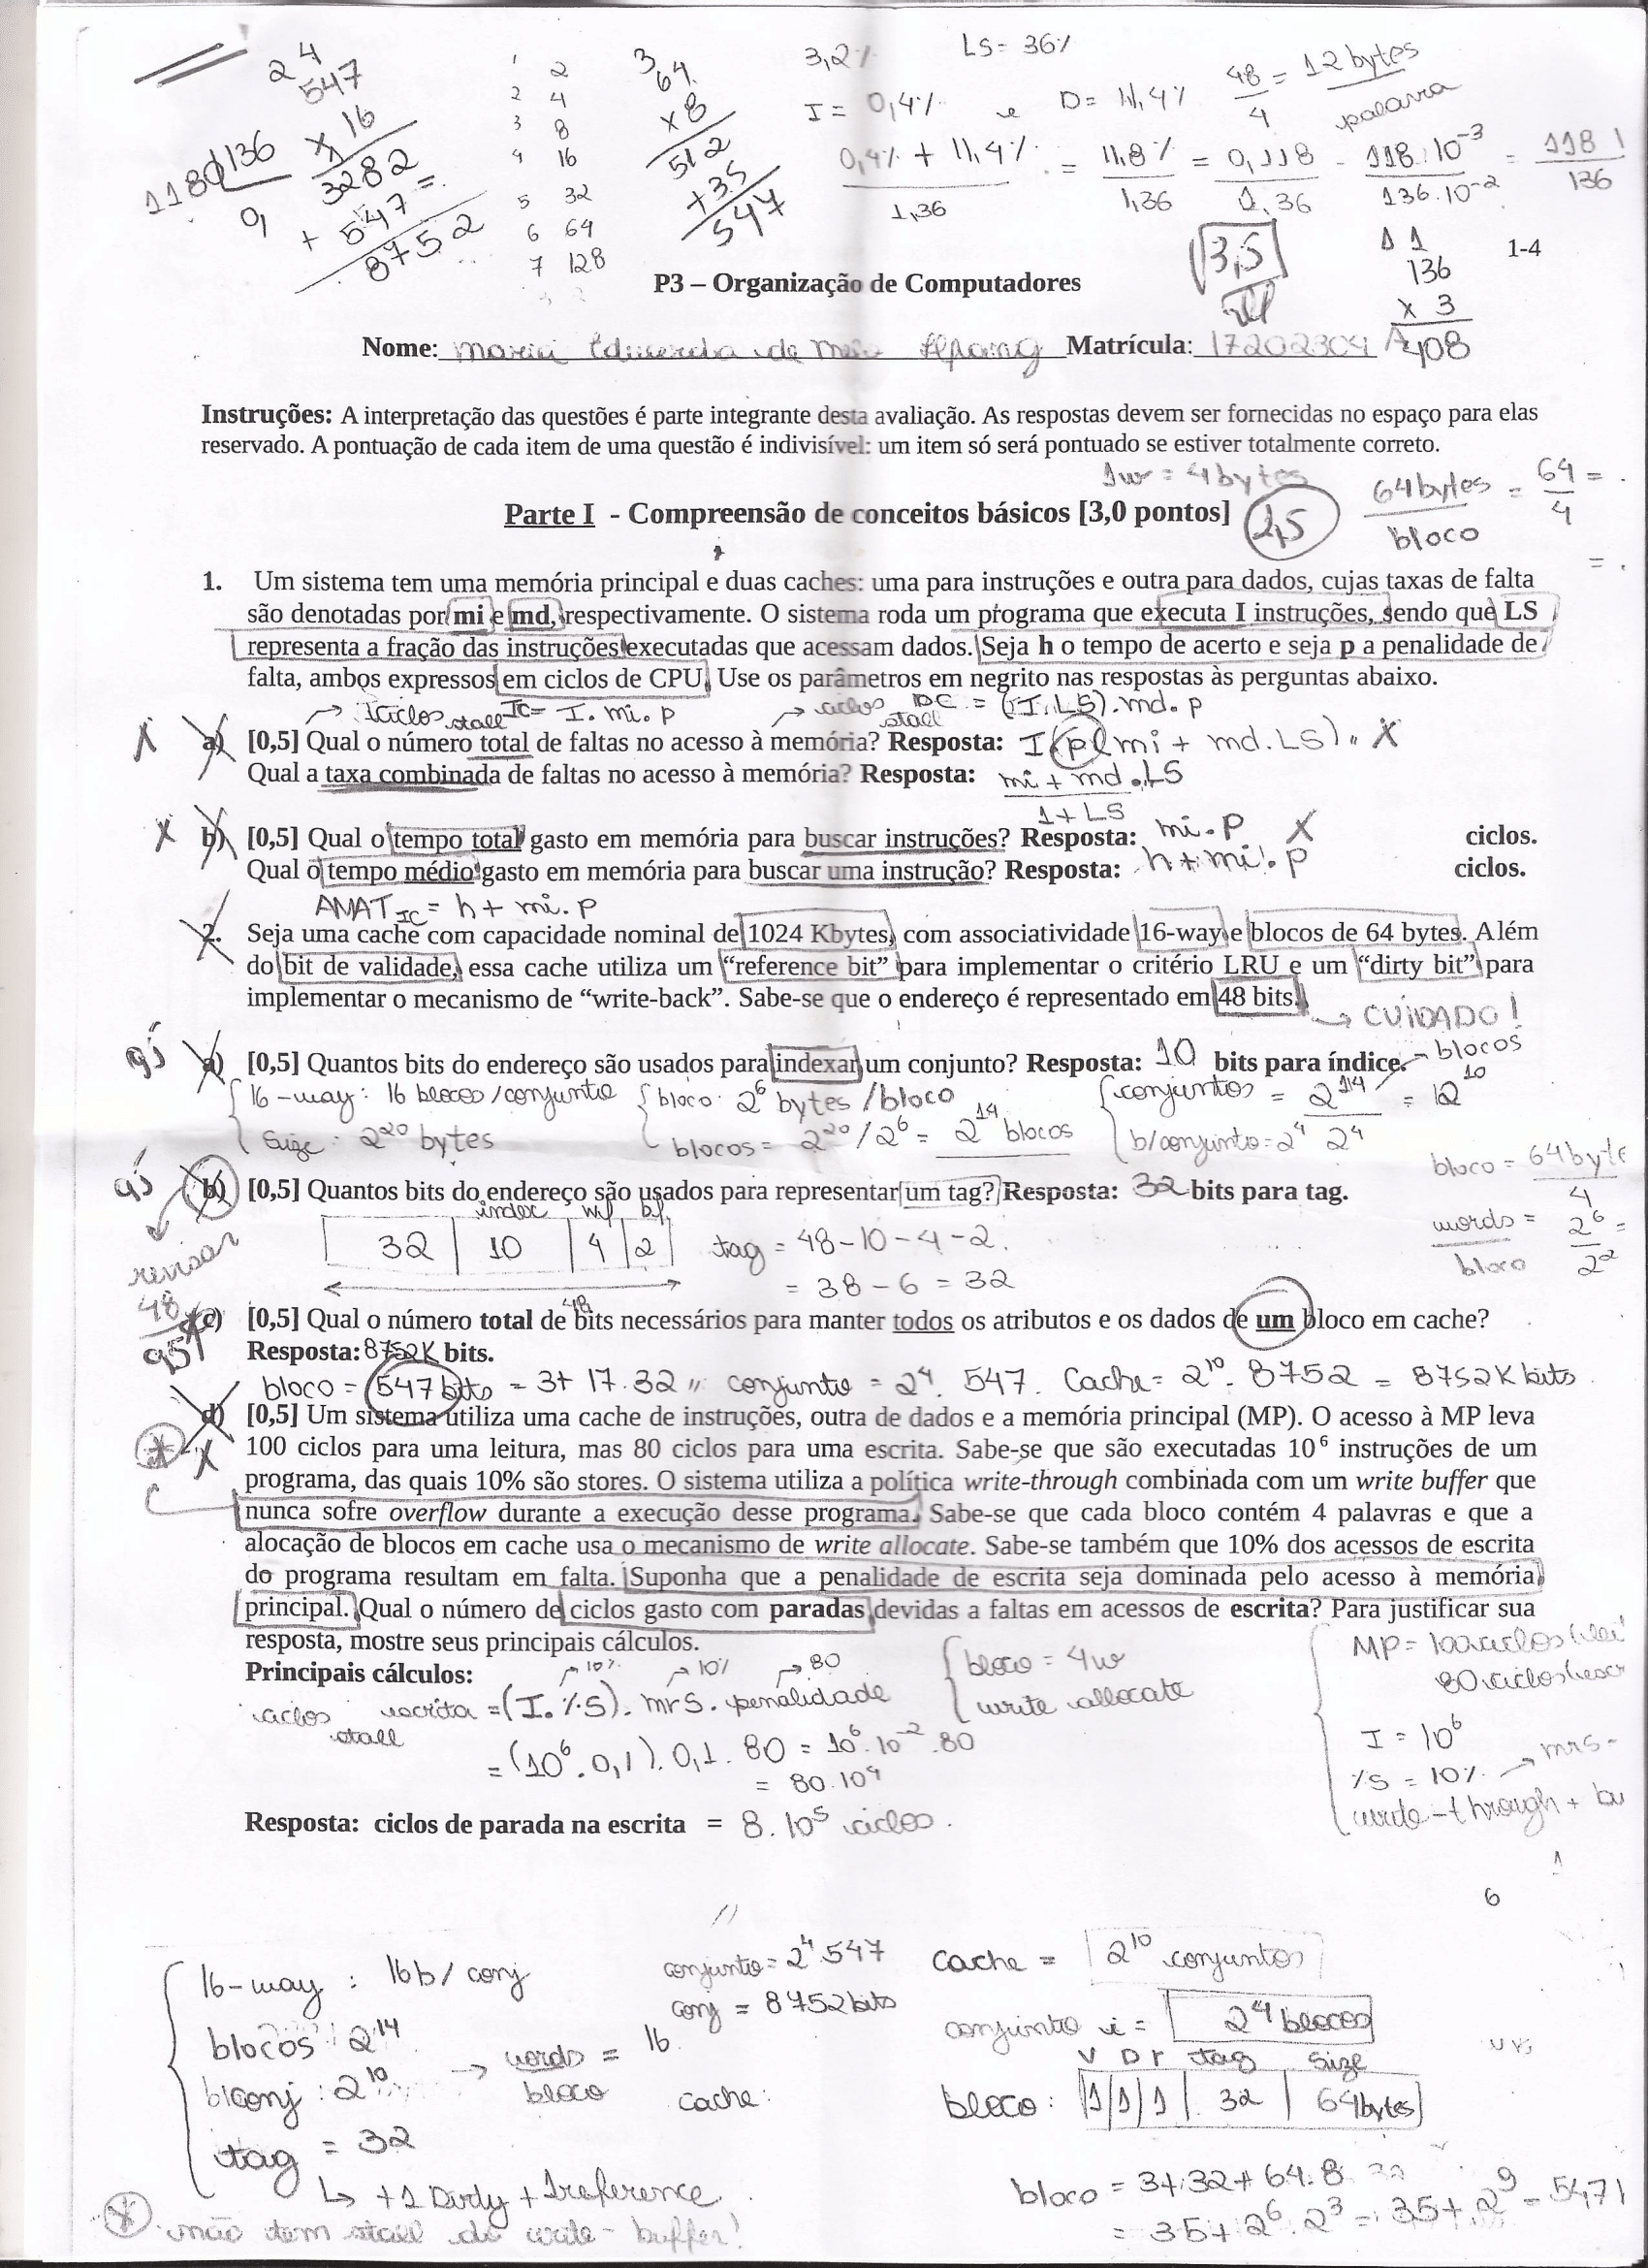 2 4
547
x 16
3282
+ 547=
8752
1180 |136
0,
1 2
2 4
3 8
4 16
5 32
6 64
7 128
3
64
x 8
512
+35
547
3,2%
LS= 36%
I = 0,4% e D= 11,4%
48/4 = 12 bytes/palavra
(0,4% + 11,4%)/1,36 = 11,8%/1,36 = 0,118/1,36 = 118.10^-3/136.10^-2 = 118/136
3,5
1 1
136
x 3
408
1-4
P3 – Organização de Computadores
Nome: Maria Eduarda de Melo Matrícula: 17202304
Instruções: A interpretação das questões é parte integrante desta avaliação. As respostas devem ser fornecidas no espaço para elas
reservado. A pontuação de cada item de uma questão é indivisível: um item só será pontuado se estiver totalmente correto.
1w = 4 bytes
64 bytes/bloco = 64/4 =
Parte I - Compreensão de conceitos básicos [3,0 pontos] 1,5
1. Um sistema tem uma memória principal e duas caches: uma para instruções e outra para dados, cujas taxas de falta
são denotadas por mi e md, respectivamente. O sistema roda um programa que executa I instruções, sendo que LS
representa a fração das instruções executadas que acessam dados. Seja h o tempo de acerto e seja p a penalidade de
falta, ambos expressos em ciclos de CPU. Use os parâmetros em negrito nas respostas às perguntas abaixo.
→ ciclos stall IC= I. mi. p → ciclos stall DC = (I.LS).md.p
X a) [0,5] Qual o número total de faltas no acesso à memória? Resposta: I.p(mi + md.LS) X
Qual a taxa combinada de faltas no acesso à memória? Resposta: (mi + md.LS)/(1+LS)
X b) [0,5] Qual o tempo total gasto em memória para buscar instruções? Resposta: mi.p X ciclos.
Qual o tempo médio gasto em memória para buscar uma instrução? Resposta: h+mi.p ciclos.
AMAT IC = h + mi.p
2. Seja uma cache com capacidade nominal de 1024 Kbytes, com associatividade 16-way e blocos de 64 bytes. Além
do bit de validade, essa cache utiliza um “reference bit” para implementar o critério LRU e um “dirty bit” para
implementar o mecanismo de “write-back”. Sabe-se que o endereço é representado em 48 bits.
→ CUIDADO!
0,5 a) [0,5] Quantos bits do endereço são usados para indexar um conjunto? Resposta: 10 bits para índice.
→ blocos
16-way: 16 blocos/conjunto bloco: 2^6 bytes/bloco conjuntos = 2^14/2^4 = 2^10
Size: 2^20 bytes blocos = 2^20/2^6 = 2^14 blocos b/conjunto=2^4
0,5 b) [0,5] Quantos bits do endereço são usados para representar um tag? Resposta: 32 bits para tag.
revisar
index
32 | 10 | 4 | 2
48
tag = 48-10-4-2.
= 38-6 = 32
bloco = 64 byte/4
words/bloco = 2^6/2^2 =
0,5 c) [0,5] Qual o número total de bits necessários para manter todos os atributos e os dados de um bloco em cache?
Resposta: 8752K bits.
bloco = 547 bits = 3+ 17.32 conjunto = 2^4. 547. Cache= 2^10. 8752 = 8752K bits
d) [0,5] Um sistema utiliza uma cache de instruções, outra de dados e a memória principal (MP). O acesso à MP leva
100 ciclos para uma leitura, mas 80 ciclos para uma escrita. Sabe-se que são executadas 10^6 instruções de um
* X programa, das quais 10% são stores. O sistema utiliza a política write-through combinada com um write buffer que
nunca sofre overflow durante a execução desse programa. Sabe-se que cada bloco contém 4 palavras e que a
alocação de blocos em cache usa o mecanismo de write allocate. Sabe-se também que 10% dos acessos de escrita
do programa resultam em falta. Suponha que a penalidade de escrita seja dominada pelo acesso à memória
principal. Qual o número de ciclos gasto com paradas devidas a faltas em acessos de escrita? Para justificar sua
resposta, mostre seus principais cálculos.
Principais cálculos:
→10% →10% →80
ciclos stall escrita = (I.%S). mrS. penalidade
= (10^6.0,1).0,1.80 = 10^6.10^-2.80
= 80.10^4
bloco = 4w
write allocate
MP= 100 ciclos
80 ciclos
I = 10^6
%S = 10% → mrS
write-through + bu
Resposta: ciclos de parada na escrita = 8.10^5 ciclos.
6
16-way : 16b/conj
blocos : 2^14
b/conj : 2^10
tag = 32
↳ +1 Dirty + 1reference
→ words/bloco = 16
conjunto = 2^4.547
conj = 8752 bits
cache:
cache = 2^10 conjuntos
conjunto i = 2^4 blocos
V D r tag size
bloco: 1 | 1 | 1 | 32 | 64 bytes
bloco = 3+32+64.8
= 35+2^6.2^3 = 35+2^9 = 547
* não tem stall do write-buffer!